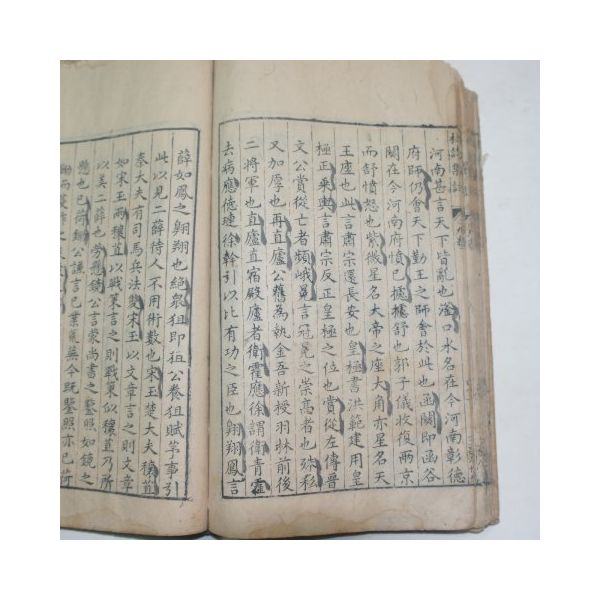 河南甚言天下皆亂也滏口水名在今河南彰德
府師仍會天下勤王之師會於此也函關即函谷
關在今河南府憤已攄攄舒也郭子儀收復兩京
而舒憤怒也紫微星名大帝之座大角亦星名天
王座也此言肅宗還長安也皇極書洪範建用皇
極正乘輿言肅宗反正皇極之位也賞從左傳晉
文公賞從亡者頻峨冕言冠冕之崇高者也殊私
又加厚也再直廬公舊為執金吾新授羽林前後
二將軍也直廬直宿殿廬者衛霍應徐謂衛青霍
去病應瑒徐幹引以比有功之臣也翱翔鳳言
薛如鳳之翱翔也絕眾狙即狙公養狙賦芧事引
此以見二薛待人不用術數也宋玉楚大夫穰苴
秦大夫有司馬兵法幾宋玉以文章言之則文章
如宋玉兩穰苴以戰策言之則戰策似穰苴乃所
以美二薛也勞懸鏡公言蒙尚書之鑒照如鏡之
懸也已荷鋤公謙言已業蕪今既鑒照亦已荷